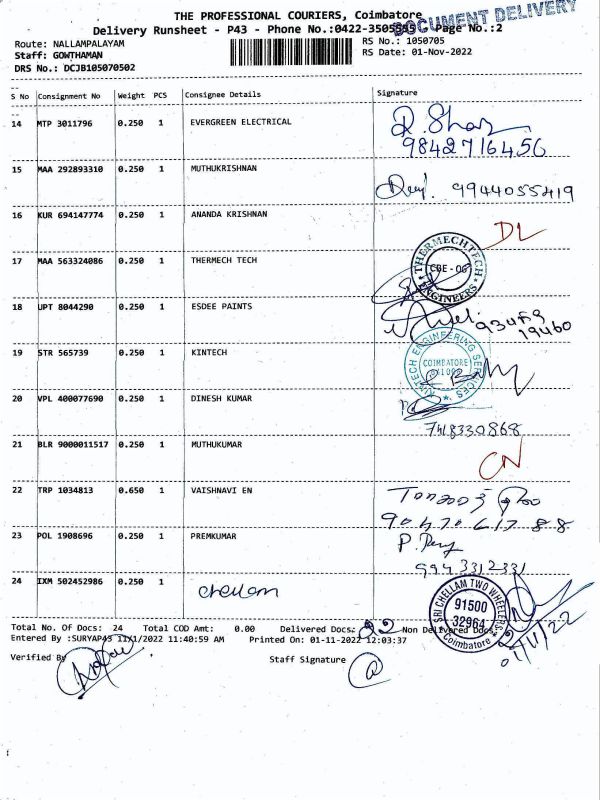 THE PROFESSIONAL COURIERS, Coimbatore
DOCUMENT DELIVERY
Delivery Runsheet - P43 - Phone No.:0422-3505593 Page No.:2
Route: NALLAMPALAYAM RS No.: 1050705
Staff: GOWTHAMAN RS Date: 01-Nov-2022
DRS No.: DCJB105070502
S No Consignment No Weight PCS Consignee Details Signature
14 MTP 3011796 0.250 1 EVERGREEN ELECTRICAL
9842716456
15 MAA 292893310 0.250 1 MUTHUKRISHNAN
9944055419
16 KUR 694147774 0.250 1 ANANDA KRISHNAN DL
17 MAA 563324086 0.250 1 THERMECH TECH
THERMECHTECH ENGINEERS CBE - 06
18 UPT 8044290 0.250 1 ESDEE PAINTS
19460
19 STR 565739 0.250 1 KINTECH
KINTECH ENGINEERING SERVICES COIMBATORE
20 VPL 400077690 0.250 1 DINESH KUMAR
7418330868
21 BLR 9000011517 0.250 1 MUTHUKUMAR CN
22 TRP 1034813 0.650 1 VAISHNAVI EN
9047061788
23 POL 1908696 0.250 1 PREMKUMAR
9943312331
24 IXM 502452986 0.250 1 chellam
SRI CHELLAM TWO WHEELERS 91500 32964 Coimbatore
Total No. Of Docs: 24 Total COD Amt: 0.00 Delivered Docs: 22 Non Delivered Docs:
Entered By :SURYAP43 11/1/2022 11:40:59 AM Printed On: 01-11-2022 12:03:37
01/11/22
Verified By Staff Signature